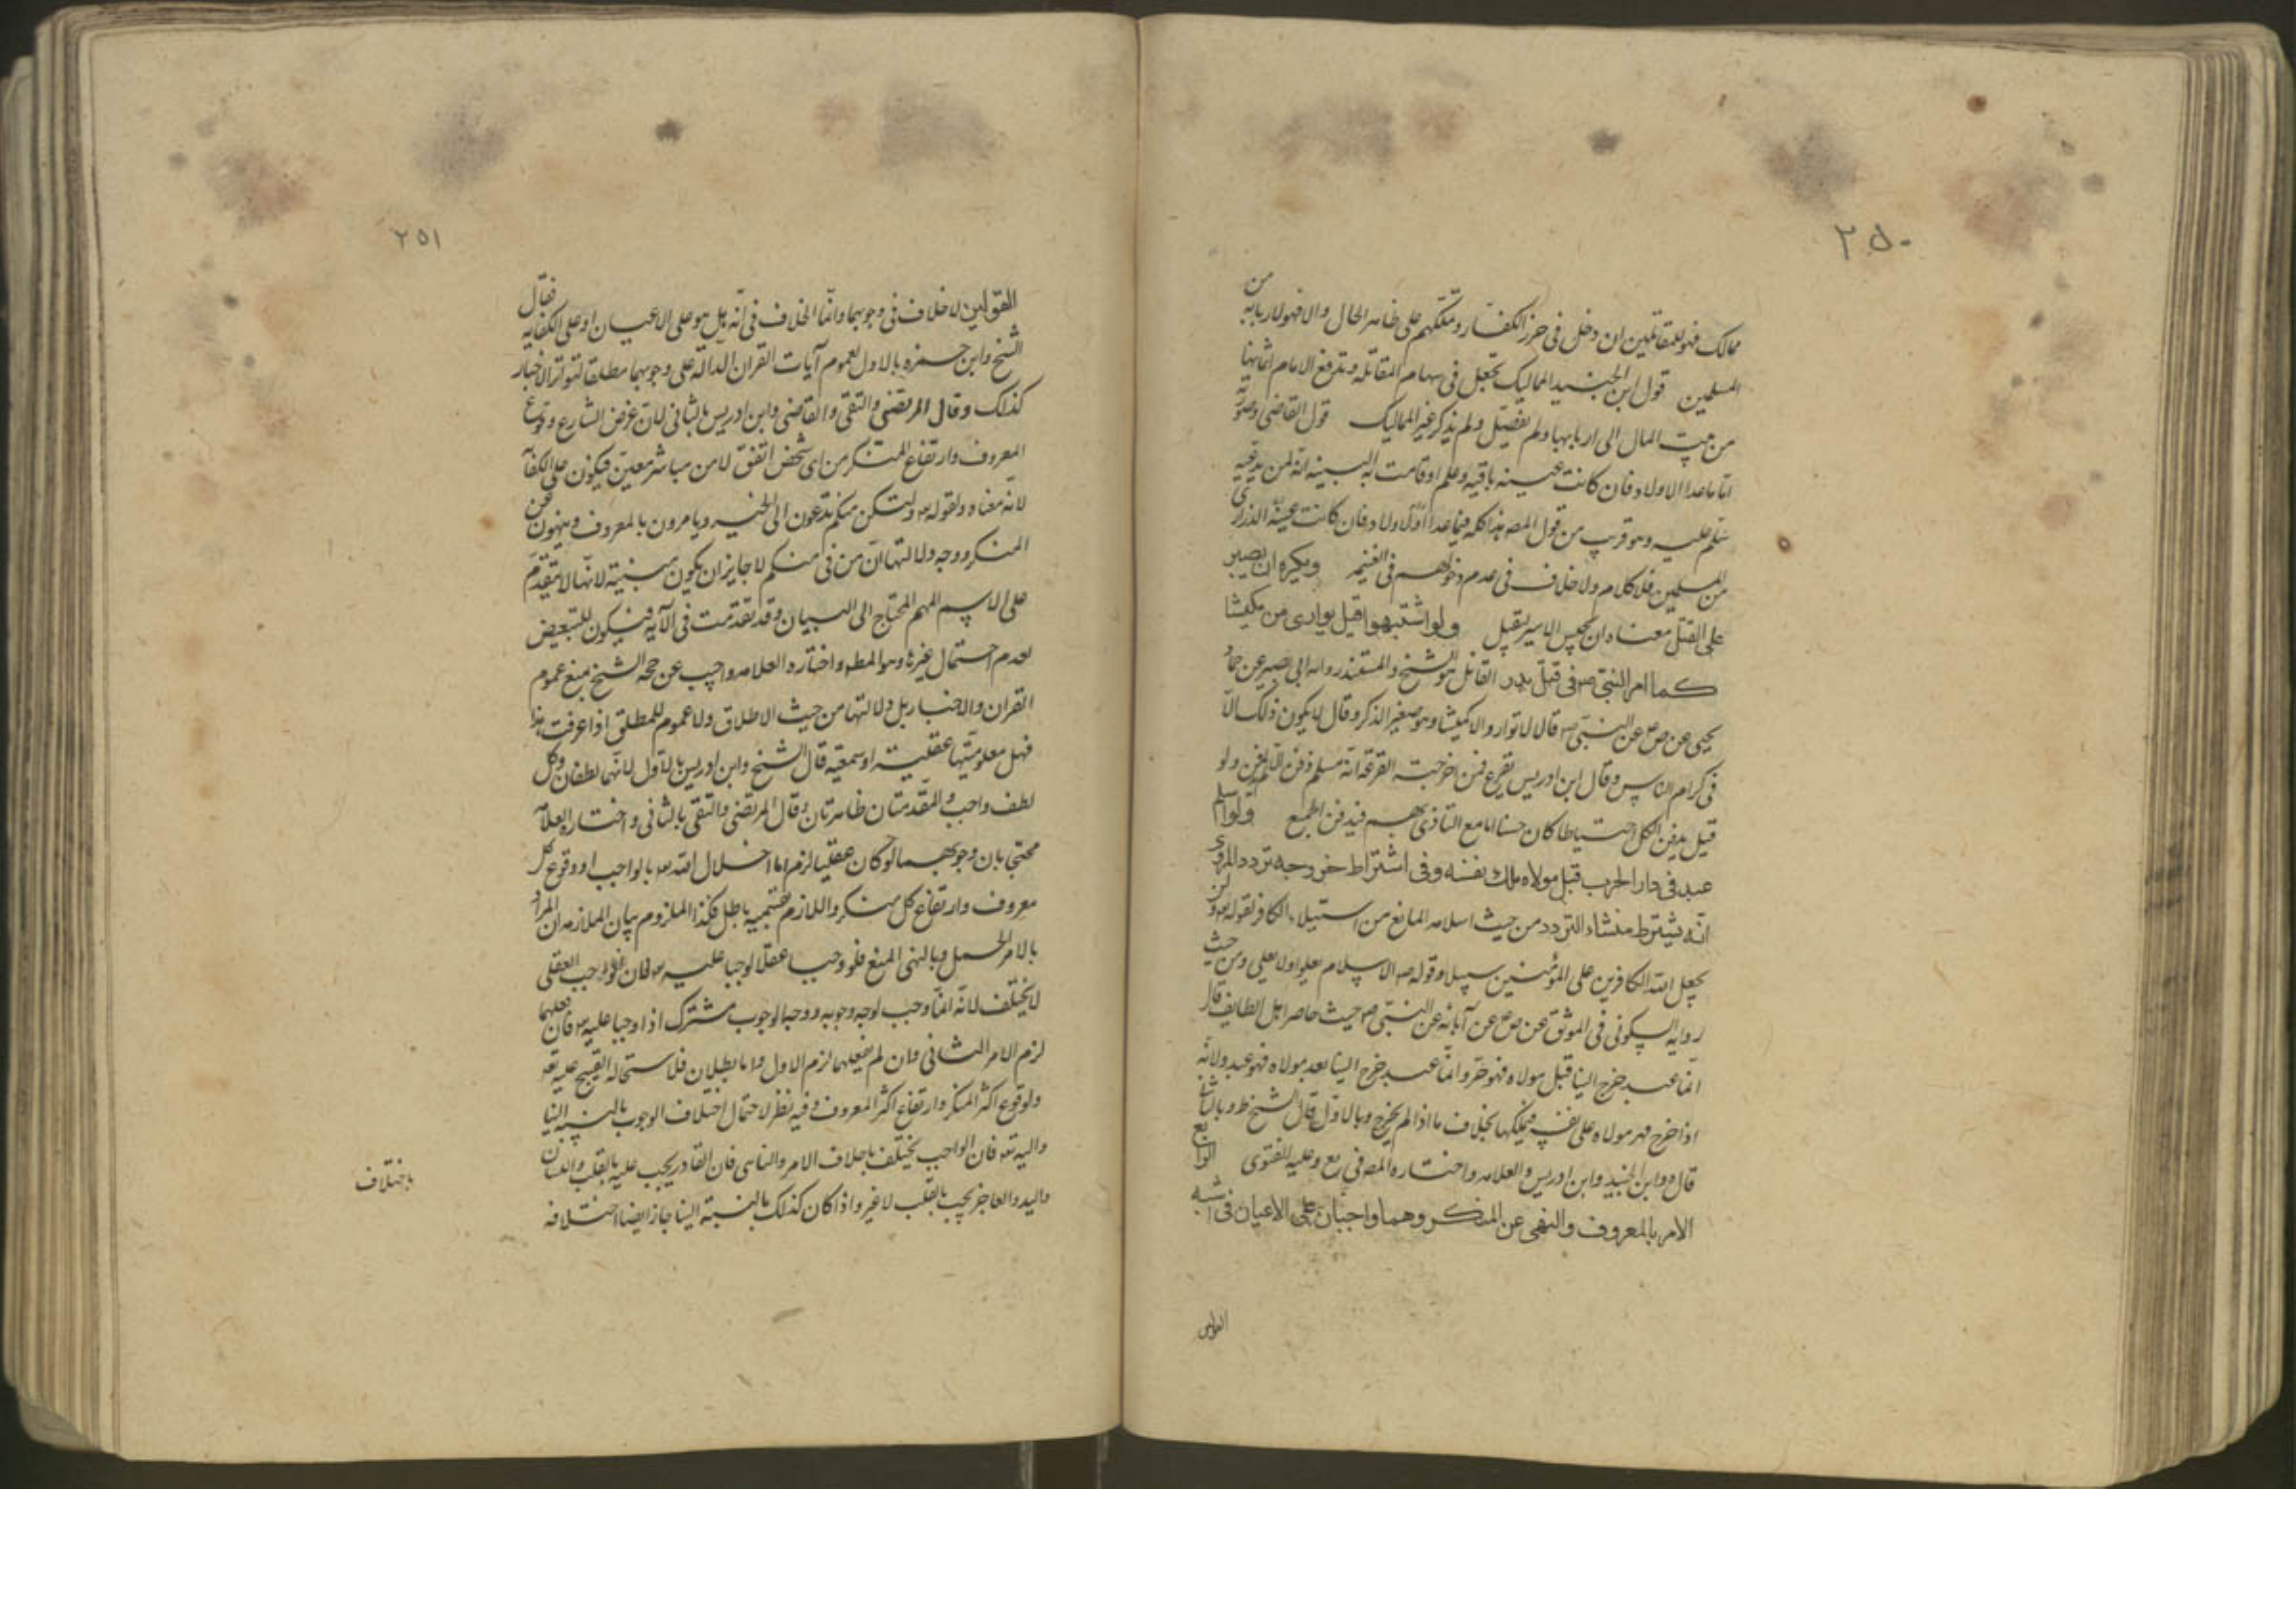 ٢٥٠
ممالك فهو للمقاتلين ان دخل في حرز الكفار وتملكهم على ظاهر الحال والا فهو لاربابه من
المسلمين قول ابن الجنيد المماليك تجعل في سهام المقاتله ويدفع الامام اثمانها
من بيت المال الى اربابها ولم يفصل ولم يذكر غير المماليك قول القاضى وصورته
اما ما عدا الاولاد فان كانت عينه باقيه وعلم او قامت له البينه انه لمن يدعيه
سلم عليه وهو قريب من قول المص هذا كله فيما عدا الاولاد فان كانت عينه الذرارى
من المسلمين فلا كلام ولا خلاف في عدم دخولهم في الغنيمه ويكره ان يصبر
على القتل معناه ان يحبس الاسير ليقتل ولو اشتبهوا قيل يوارى من كميشا
كما امر النبي ص في قتلى بدر القائل هو الشيخ والمستند رواية ابى بصير عن حماد
يحيى عن ص ع عن النبي ص قال لا تواروا الا كميشا وهو صغير الذكر وقال لا يكون ذلك الا
في كرام الناس وقال ابن ادريس يقرع فمن اخرجته القرعة انه مسلم دفن والا لم يدفن ولو
قيل يدفن الكل احتياطا كان حسنا اما مع التأذى بهم فيدفن الجميع ولو اسلم
عبد في دار الحرب قبل مولاه ملك نفسه وفى اشتراط خروجه تردد المروى
انه يشترط منشاء التردد من حيث اسلامه المانع من استيلاء الكافر لقوله تع ولن
يجعل الله الكافرين على المؤمنين سبيلا وقوله ص الاسلام يعلو ولا يعلى ومن حيث
رواية السكونى في الموثق عن ص ع عن آبائه عن النبي ص حيث حاصر اهل الطايف قال
ايما عبد خرج الينا قبل مولاه فهو حر وايما عبد خرج الينا بعد مولاه فهو عبد ولانه
اذا خرج قهر مولاه على نفسه فيملكها بخلاف ما اذا لم يخرج وبالاول قال الشيخ ط وبالثانى
قال وابن الجنيد وابن ادريس والعلامه واختاره المص في يع وعليه الفتوى الرابع
الامر بالمعروف والنهى عن المنكر وهما واجبان على الاعيان في اشبه
القولين
٢٥١
القولين لا خلاف في وجوبهما وانما الخلاف في انه هل هو على الاعيان او على الكفايه فقال
الشيخ وابن حمزه بالاول لعموم آيات القران الدالة على وجوبهما مطلقا لتواتر الاخبار
كذلك وقال المرتضى والتقى والقاضى وابن ادريس بالثانى لان غرض الشارع وقوع
المعروف وارتفاع المنكر من اى شخص اتفق لا من مباشر معين فيكون على الكفاية
لانه معناه ولقوله تع ولتكن منكم يدعون الى الخير ويامرون بالمعروف وينهون عن
المنكر ووجه دلالتها ان من في منكم لا جايز ان يكون مبينة لانها لا تتقدم
على الاسم المبهم المحتاج الى البيان وقد تقدمت في الآيه فيكون للتبعيض
لعدم احتمال غيرها وهو المطـ واختاره العلامه واجيب عن حجة الشيخ بمنع عموم
القران والاخبار بل دلالتها من حيث الاطلاق ولا عموم للمطلق اذا عرفت هذا
فهل معلوميتها عقلية او سمعية قال الشيخ وابن ادريس بالاول لانهما لطفان وكل
لطف واجب والمقدمتان ظاهرتان وقال المرتضى والتقى بالثانى واختاره العلامه
محتجا بان وجوبهما لو كان عقليا لزم اما اخلال الله تع بالواجب او وقوع كل
معروف وارتفاع كل منكر واللازم بقسميه باطل فكذا الملزوم بيان الملازمه ان المراد
بالامر الحمل وبالنهى المنع فلو وجبا عقلا لوجبا عليه تع فان الواجب العقلى
لا يختلف لانه انما وجب لوجه وجوبه ووجه الوجوب مشترك اذا وجبا عليه تع فان فعلهما
لزم الامر الثانى وان لم يفعلهما لزم الاول واما بطلان فلاستحالة القبيح عليه تع
ولوقوع اكثر المنكر وارتفاع اكثر المعروف وفيه نظر لاحتمال اختلاف الوجوب بالنسبه الينا
واليه تع فان الواجب يختلف باختلاف الامر والناهى فان القادر يجب عليه بالقلب واللسان
واليد والعاجز يجب بالقلب لا غير واذا كان كذلك بالنسبة الينا جاز ايضا اختلافه
باختلاف